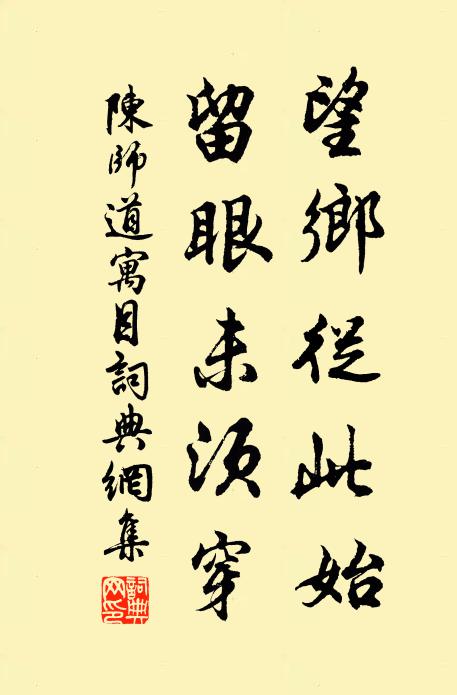 望鄉從此始
留眼未須穿
陳師道寓目詞典網集
詞典網印